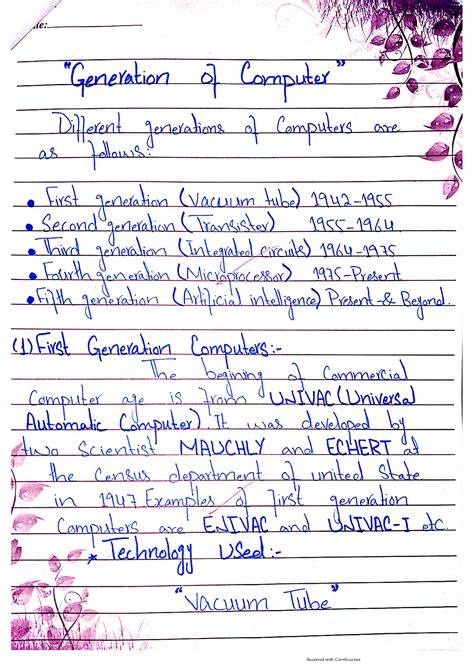 te:
"Generation of Computer"
Different generations of Computers are
as follows:
• First generation (Vacuum tube) 1942-1955
• Second generation (Transister) 1955-1964
• Third generation (Integrated circuits) 1964-1975
• Fourth generation (Microprocessor) 1975-Present
• Fifth generation (Artificial intelligence) Present & Beyond.
(1) First Generation Computers:-
The begining of Commercial
Computer age is from UNIVAC (Universal
Automatic Computer). It was developed by
two Scientist MAUCHLY and ECHERT at
the Census department of united State
in 1947. Examples of first generation
Computers are ENIVAC and UNIVAC-I etc.
* Technology Used:-
"Vacuum Tube"
Scanned with CamScanner